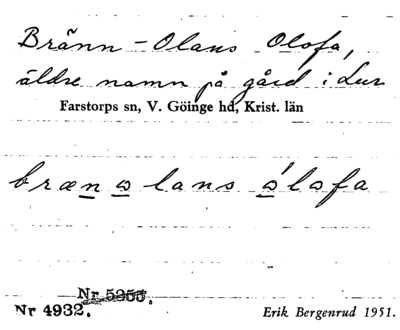 Bränn-Olans Olofa,
äldre namn på gård i Lur
Farstorps sn, V. Göinge hd, Krist. län
bræn ɷlans ɷ́lɷfa
Nr 5355.
Nr 4932.
Erik Bergenrud 1951.